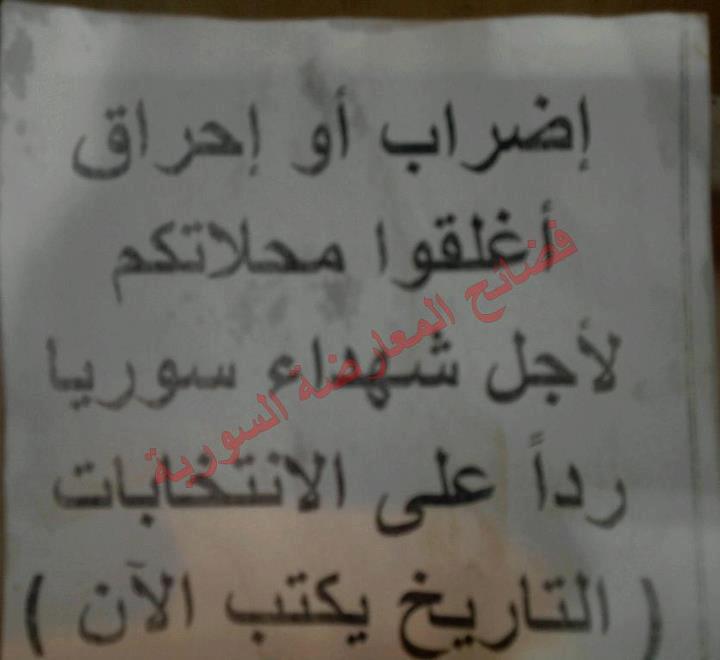 إضراب أو إحراق
أغلقوا محلاتكم
لأجل شهداء سوريا
رداً على الانتخابات
( التاريخ يكتب الآن )
فضائح المعارضة السورية